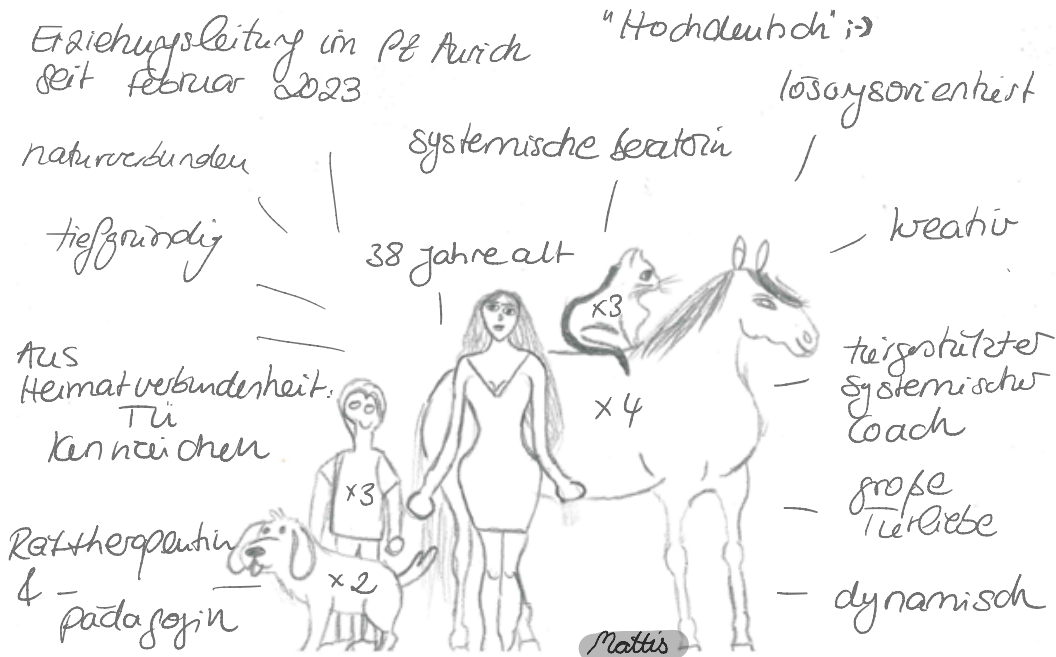 Erziehungsleitung im PZ Aurich
seit Februar 2023
"Hochdeutsch" ;-)
lösungsorientiert
naturverbunden
systemische Beraterin
tiefgründig
38 Jahre alt
kreativ
x3
Aus
Heimatverbundenheit:
TÜ
Kennzeichen
x4
tiergestützter
systemischer
Coach
x3
große
Tierliebe
Reittherapeutin
& -
pädagogin
x2
dynamisch
Mattis